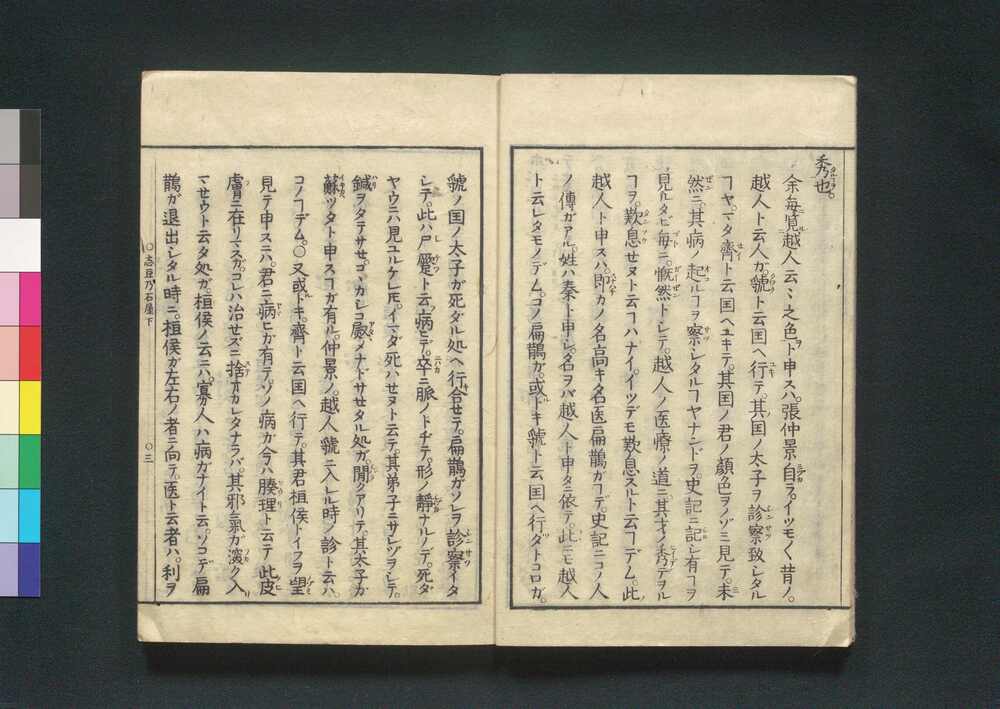 秀也。
余毎覧越人云々之色ト申スハ。張仲景自ラ。イツモ〳〵昔ノ。
越人ト云人ガ。虢ト云国ヘ行テ。其国ノ太子ヲ診察致シタル
ヿヤ。マタ齊ト云国ヘユキテ。其国ノ君ノ顔色ヲノゾミ見テ。未
然ニ其病ノ起ルヿヲ察シタルヿヤナンドヲ。史記ニ記シ有ヿヲ
見ルタビ毎ニ。慨然トシテ。越人ノ医療ノ道ニ其才ノ秀デヲル
ヿヲ。歎息セヌト云ヿハナイ。イツデモ歎息スルト云ヿデム。此
越人ト申スハ。即カノ名高キ名医扁鵲ガヿデ。史記ニコノ人
ノ傳ガアル。姓ハ秦ト申シ。名ヲバ越人ト申タニ依テ。此ニモ越人
ト云レタモノデム。コノ扁鵲ガ。或トキ虢ト云国ヘ行ダトコロガ。
虢ノ国ノ太子ガ死ダル処ヘ行合セテ。扁鵲ガソレヲ診察イタ
シテ。此ハ尸蹷ト云病ヒデ。卒ニ脈ノトヂテ。形ノ靜ナルノデ。死ダ
ヤウニハ見ユルケレ𪜈。イマダ死ハセヌト云テ。其弟子ニサシヅヲシテ。
鍼ヲタテサセ。コヽカシコ慰メナドサセタル処ガ。間クアリテ。其太子ガ
蘇ツタト申スヿガ有ル。仲景ノ。越人虢ニ入レル時ノ診ト云ハ。
コノヿデム。○又或トキ。齊ト云国ヘ行テ。其君桓侯トイフヲ望
見テ申スニハ。君ニ病ヒガ有テ。ソノ病ガ今ハ腠理ト云テ此皮
膚ニ在リマスガ。コレハ治セズニ捨オカレタナラバ。其邪氣ガ深ク入
マセウト云タ処ガ。桓侯ノ云ニハ。寡人ハ病ガナイト云。ソコデ扁
鵲ガ退出シタル時ニ。桓侯ガ左右ノ者ニ向テ。医ト云者ハ。利ヲ
○志豆乃石屋下
○三